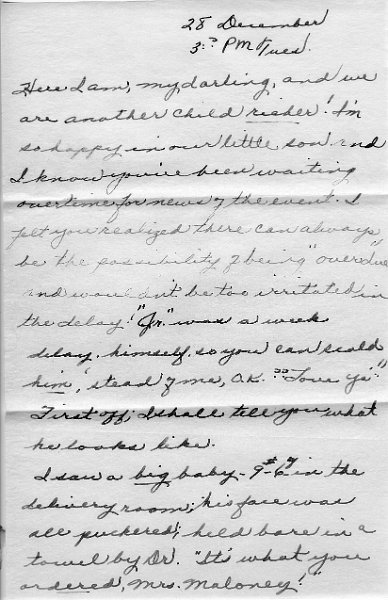 28 December
3:?? PM Tues.
Here I am, my darling, and we
are another child richer! I'm
so happy in our little son and
I know you've been waiting
overtime for news of the event. I
felt you realized there can always
be the possibility of being "overdue"
and wouldn't be too irritated in
the delay! "Jr." was a week
delay, himself, so you can scold
him, 'stead of me, O.K.?? "Love ya".
First off, I shall tell you what
he looks like.
I saw a big baby - 9# 6 in the
delivery room; his face was
all puckered; held bare in a
towel by Dr. "It's what you
ordered, Mrs. Maloney!"